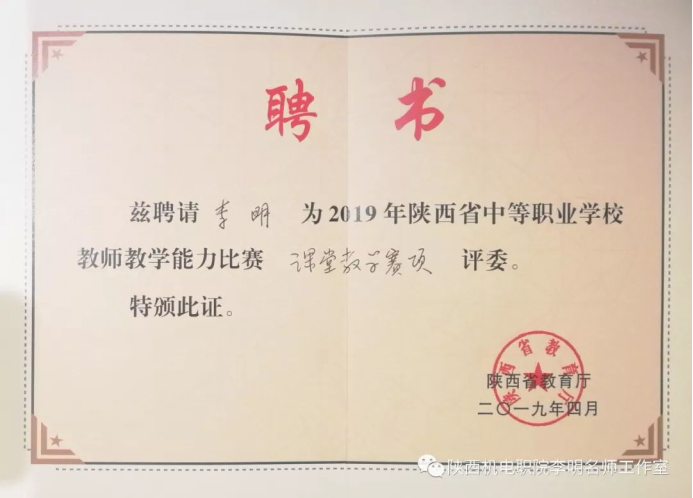 聘书
兹聘请 李明 为2019年陕西省中等职业学校
教师教学能力比赛 课堂教学赛项 评委。
特颁此证。
陕西省教育厅
陕西省教育厅
二〇一九年四月
陕西机电职院李明名师工作室